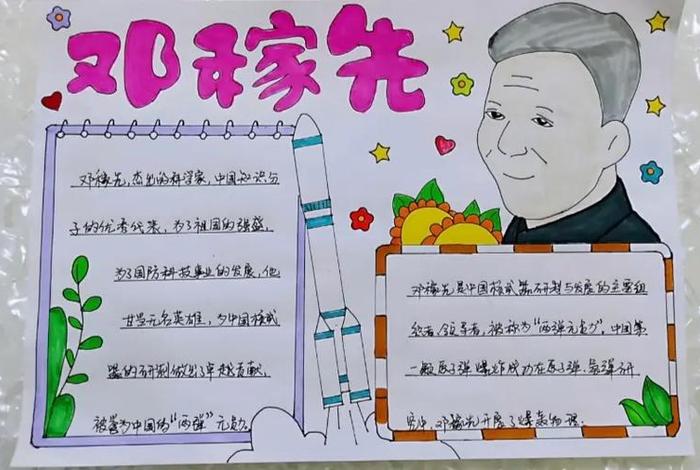 邓稼先
邓稼先，杰出的科学家，中国知识分
子的优秀代表，为了祖国的强盛，
为了国防科技事业的发展，他
甘当无名英雄，为中国核武
器的研制做出了卓越贡献，
被誉为中国的“两弹”元勋。
邓稼先是中国核武器研制与发展的主要组
织者、领导者，被称为“两弹元勋”。中国第
一颗原子弹爆炸成功在原子弹、氢弹研
究中，邓稼先开展了爆轰物理、